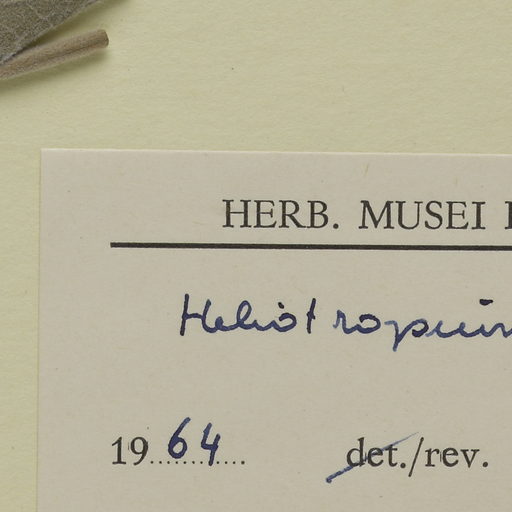 HERB. MUSEI
Heliotropium
1964 det./rev.